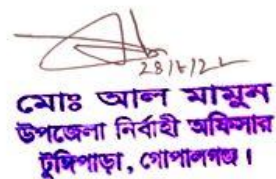 মোঃ আল মামুন
উপজেলা নির্বাহী অফিসার
টুঙ্গিপাড়া, গোপালগঞ্জ।